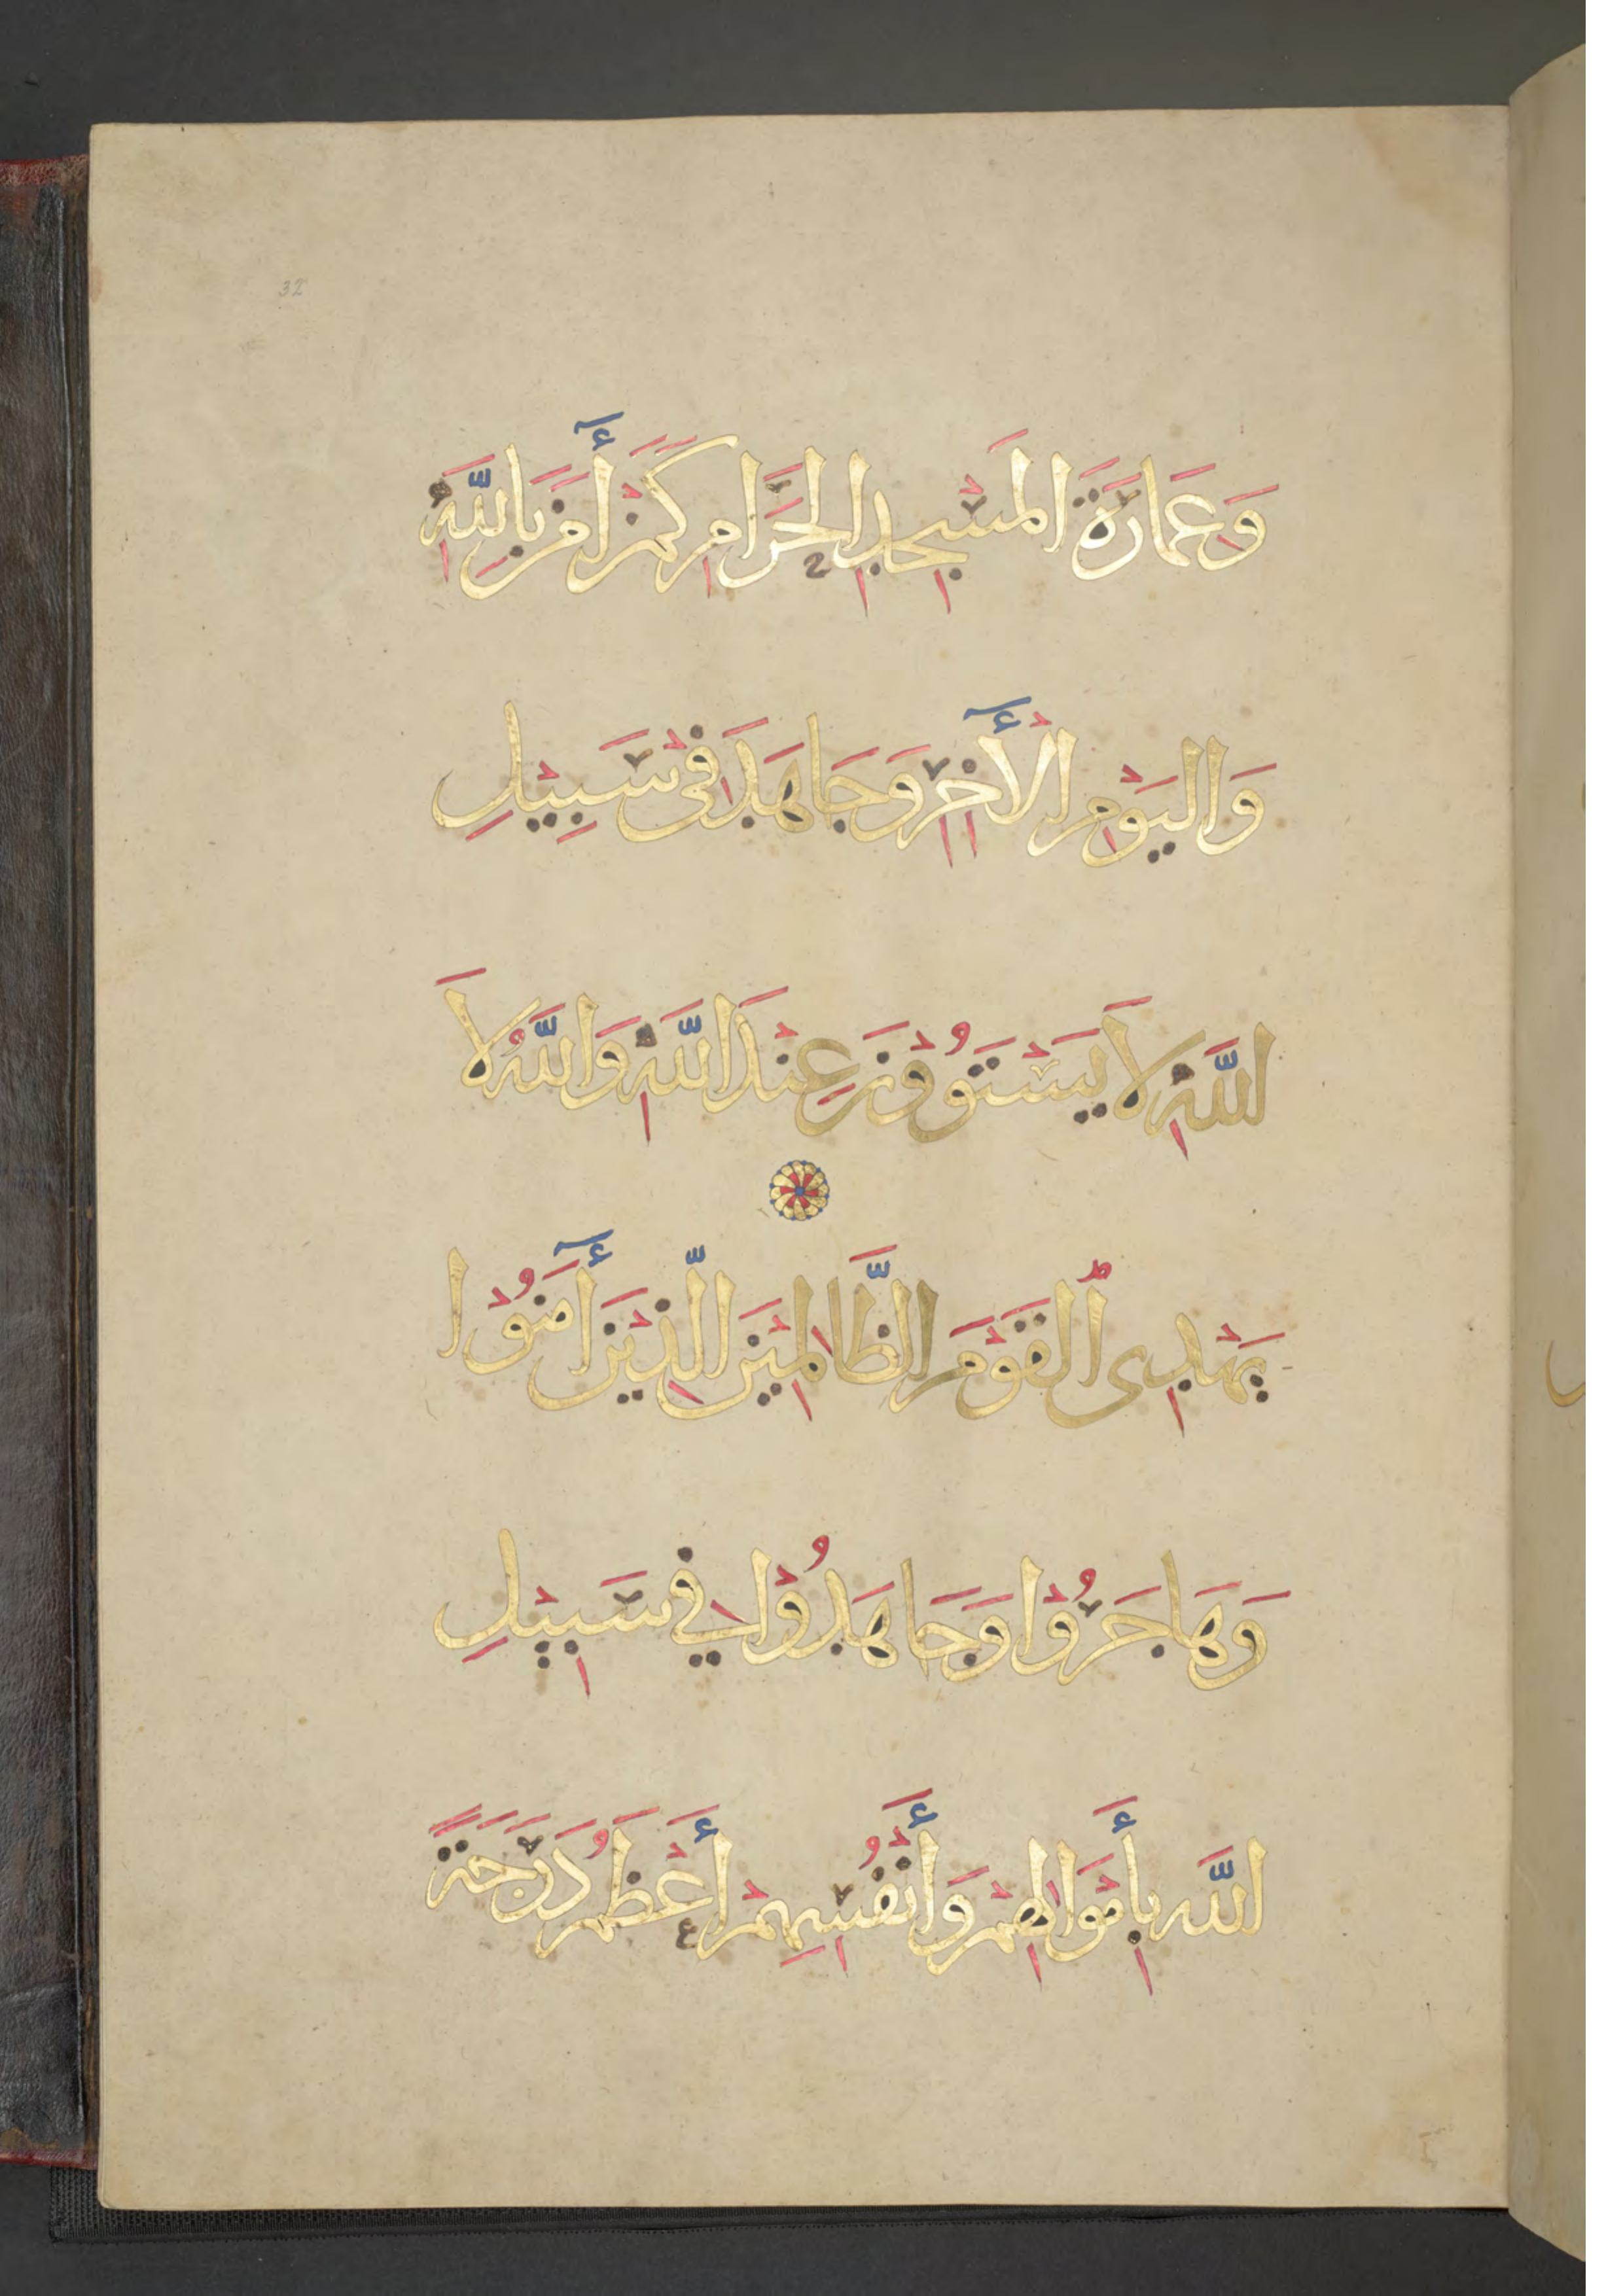 32
وَعِمَارَةَ الْمَسْجِدِ الْحَرَامِ كَمَنْ أٰمَنَ بِاللَّهِ
وَالْيَوْمِ الْأٰخِرِ وَجَاهَدَ فِى سَبِيْلِ
اللَّهِ لَا يَسْتَوُوْنَ عِنْدَ اللَّهِ وَاللَّهُ لَا
يَهْدِى ٱلْقَوْمَ الظَّالِمِيْنَ الَّذِيْنَ أٰمَنُوْا
وَهَاجَرُوْا وَجَاهَدُوْا فِي سَبِيْلِ
اللَّهِ بِأَمْوَالِهِمْ وَأَنْفُسِهِمْ أَعْظَمُ دَرَجَةً